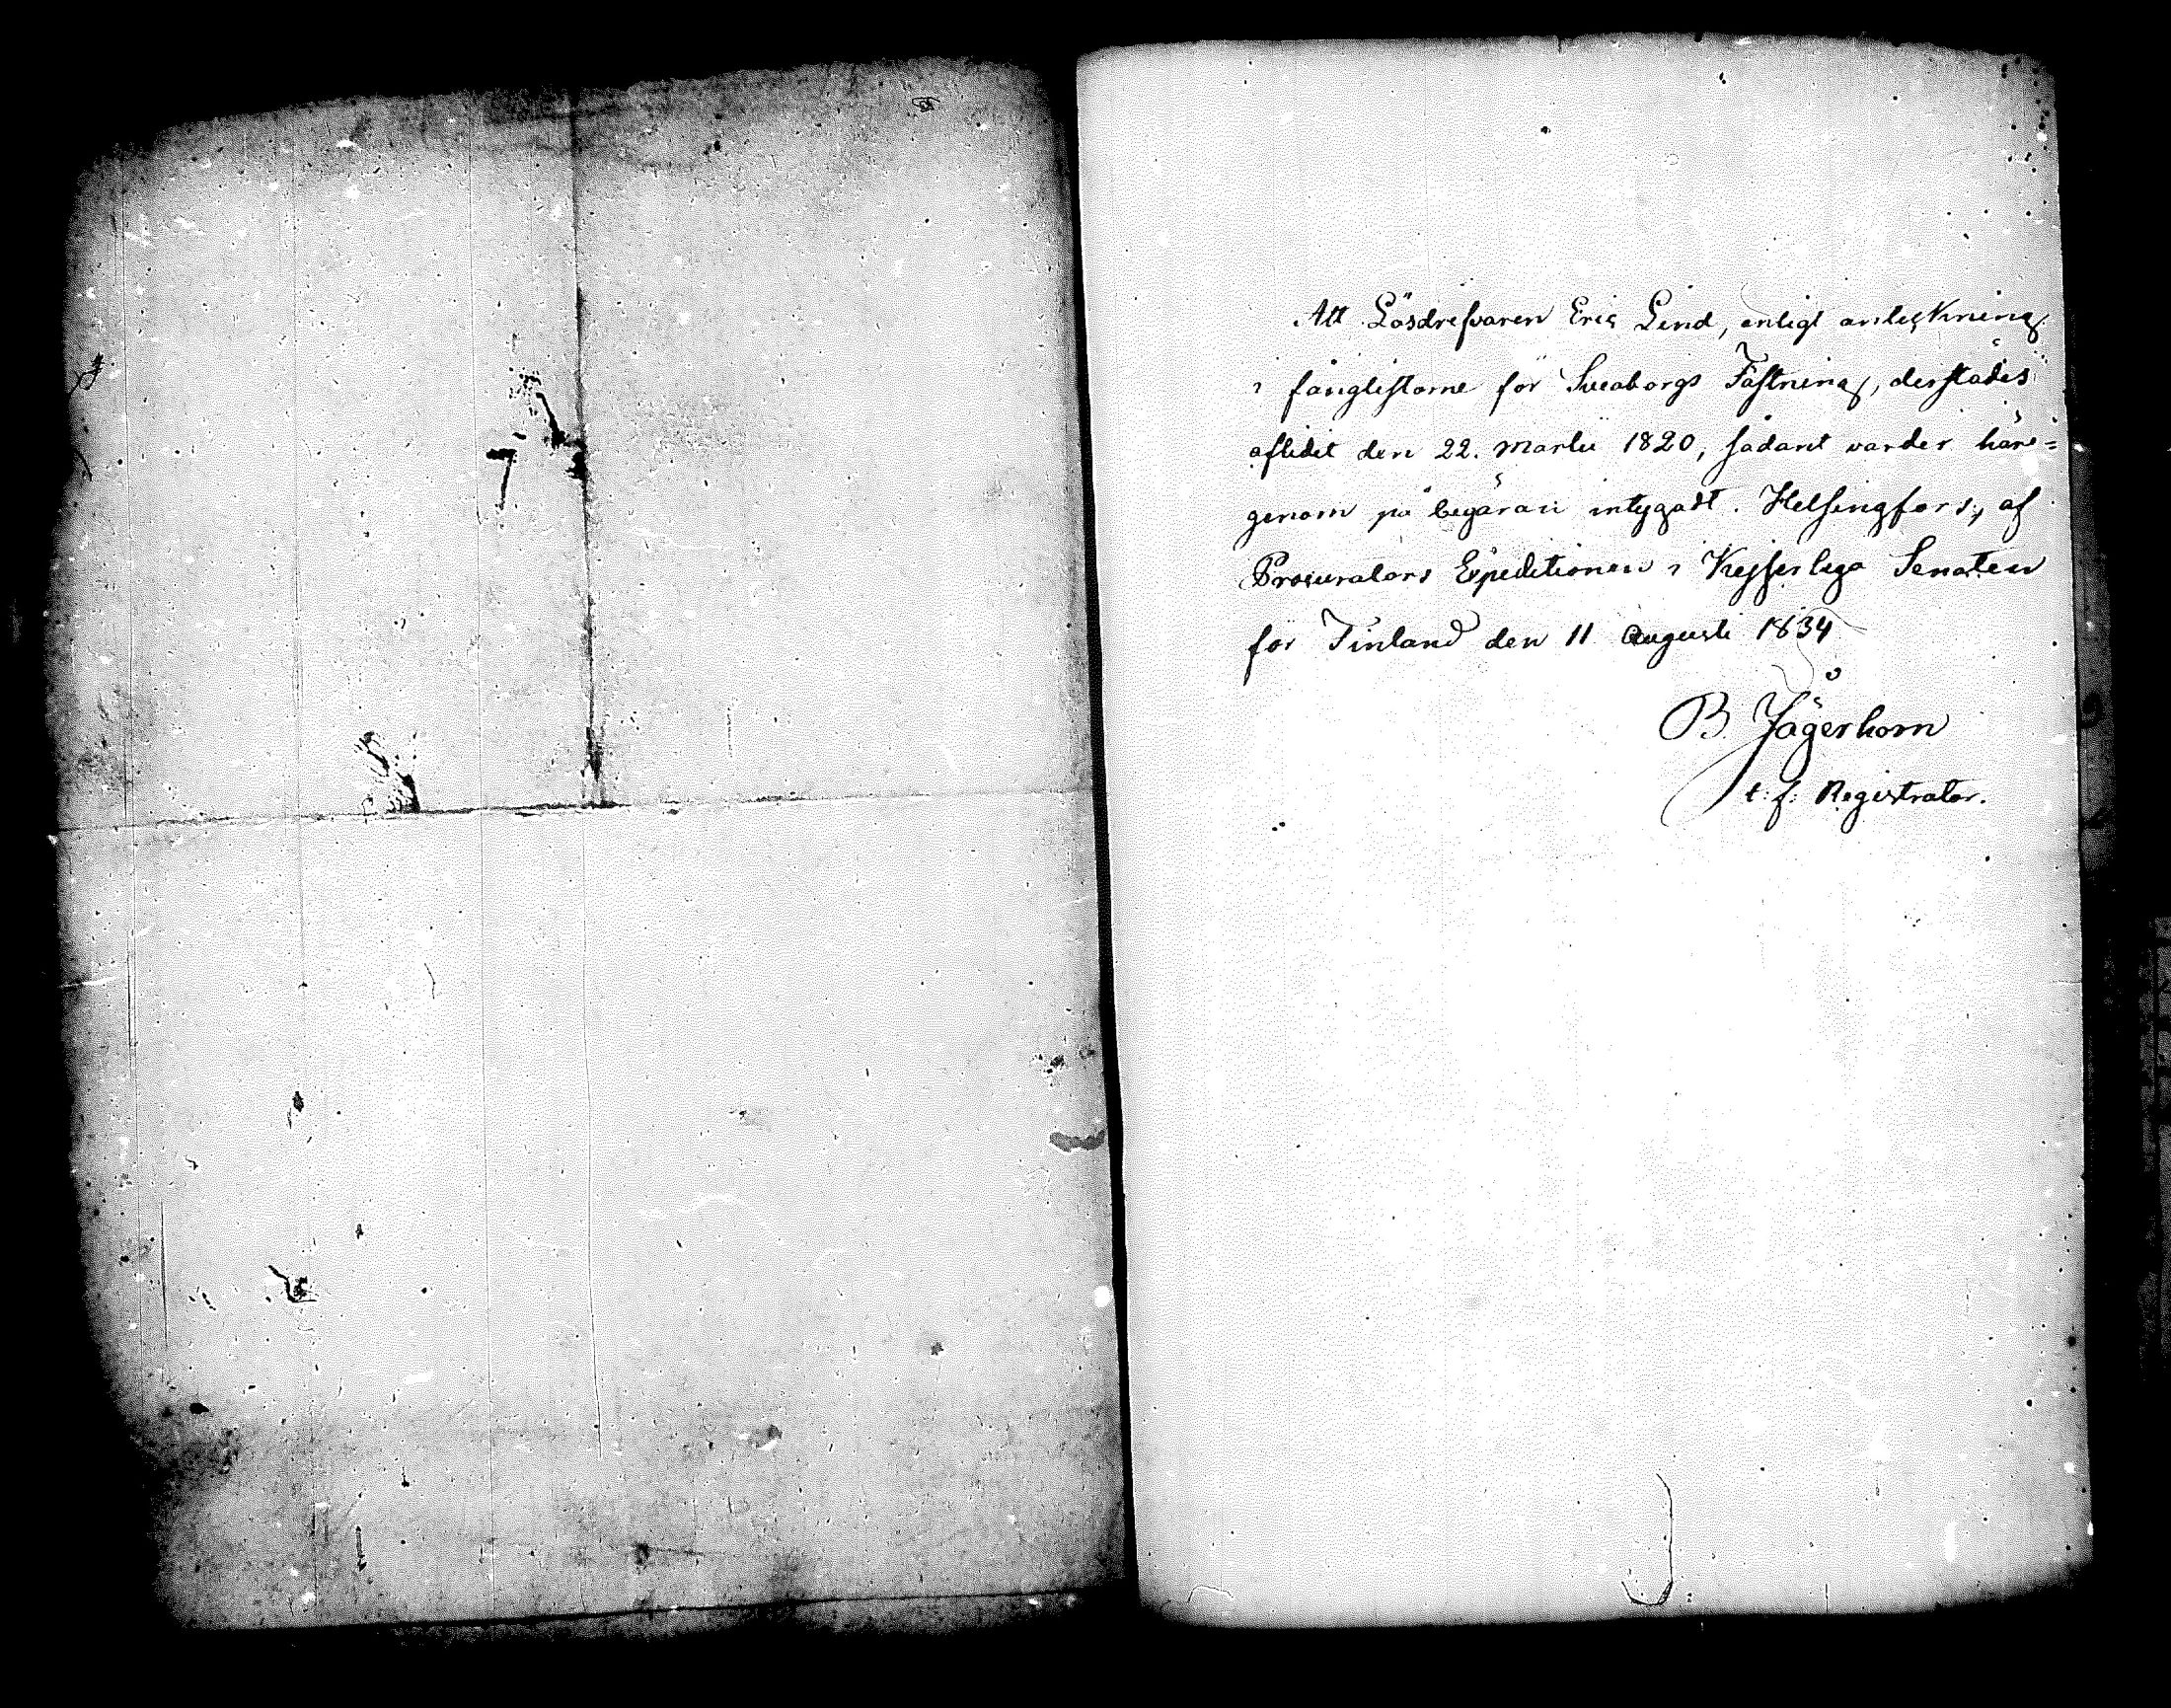 Att Lösdrifvaren Eric Lind, enligt anteckning
i fånglistorne för Sveaborgs Fästning, derstädes
aflidit den 22. Martii 1820, sådant varder häri=
genom på begäran intygadt. Helsingfors, af
Procurators Expeditionen i Kejserliga Senaten
för Finland den 11 Augusti 1834
B. Jägerhorn
t: f: Registrator.